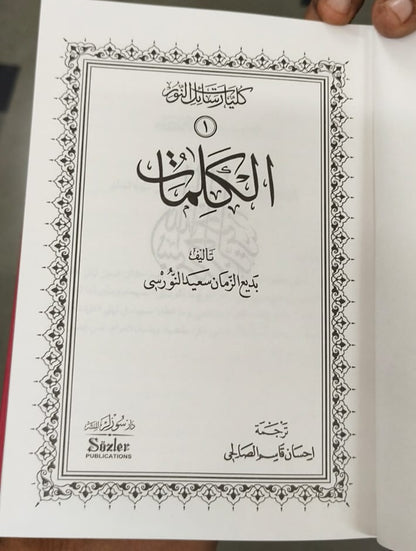 كليات رسائل النور
١
الكلمات
تأليف
بديع الزمان سعيد النورسي
ترجمة
إحسان قاسم الصالحي
دار سوزلر للنشر
Sözler
PUBLICATIONS